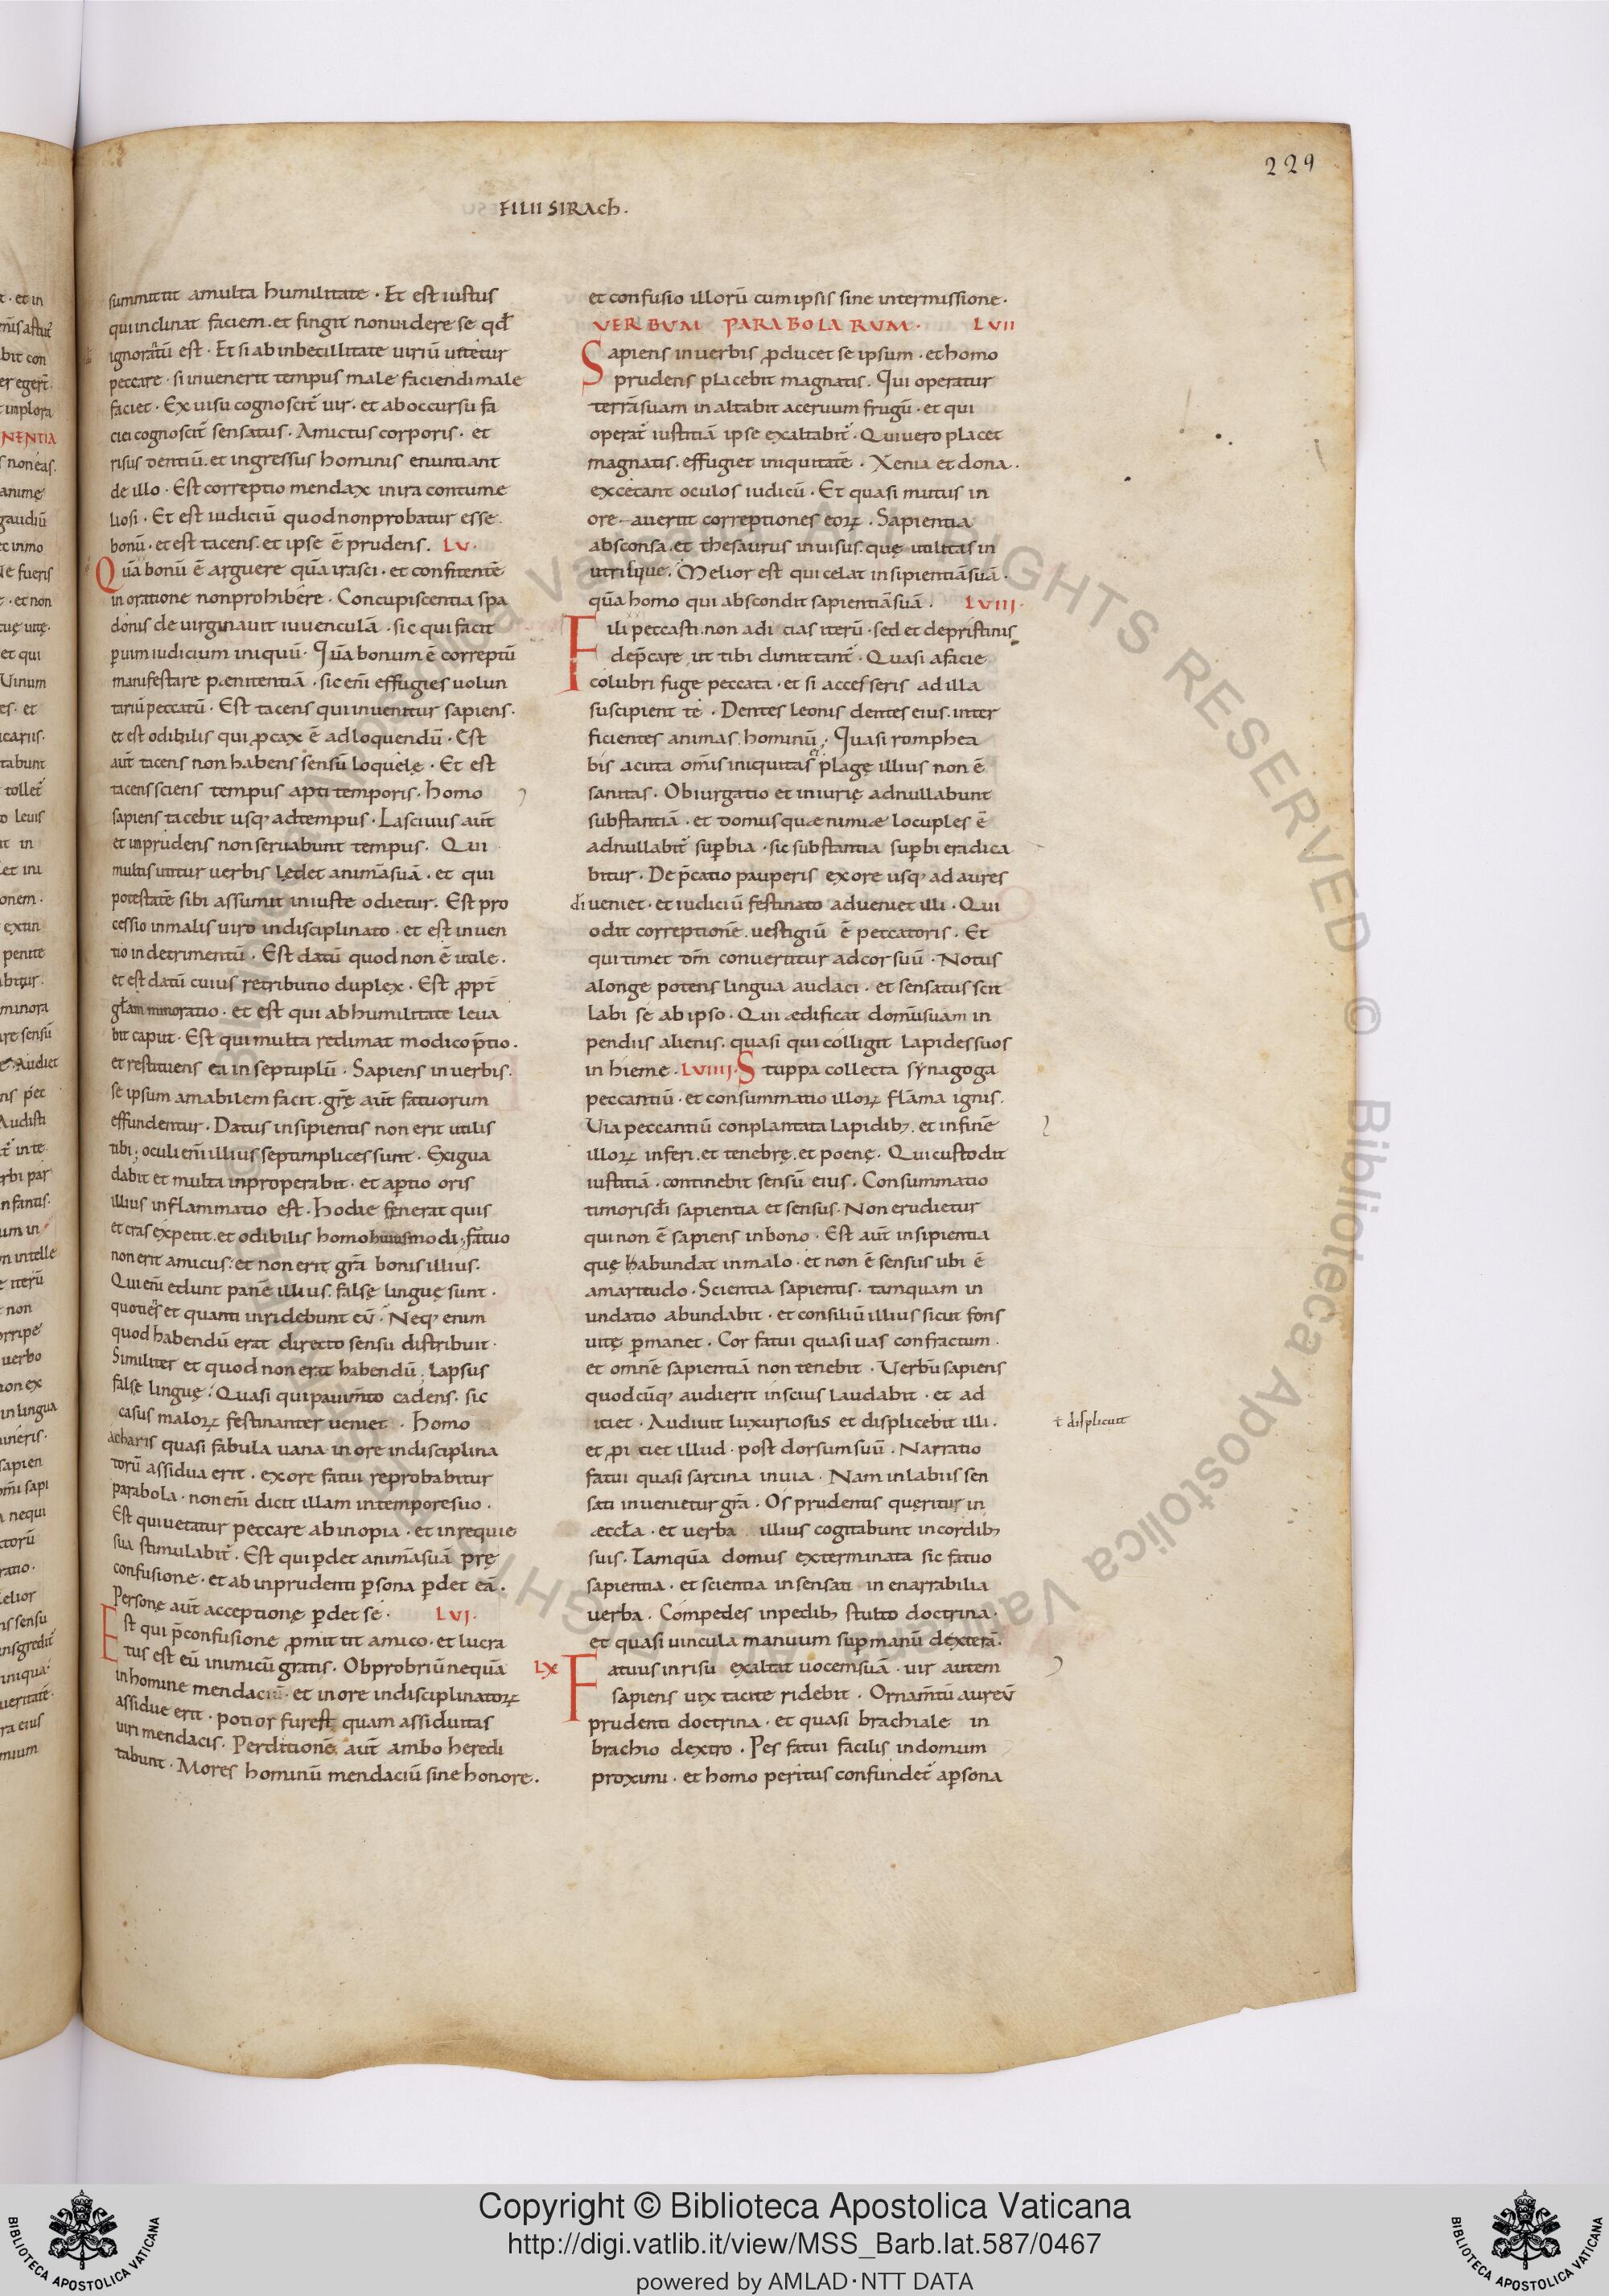 229
FILII SIRACh.
summittit amulta humilitate · Et est iustus
qui inclinat faciem. et fingit nonuidere se qđ
ignoratū est · Et si ab inbecillitate uiriū uitetur
peccare · si inuenerit tempus male faciendi male
faciet · Ex uisu cognoscit̄ uir · et ab occursu fa
ciei cognoscit̄ sensatus · Amictus corporis · et
risus dentiū. et ingressus hominis enuntiant
de illo · Est correptio mendax in ira contume
liosi · Et est iudiciū quod nonprobatur esse
bonū · et est tacens. et ipse ē prudens. LV.
Quā bonū ē arguere quā irasci · et confitentē
in oratione nonprohibere · Concupiscentia spa
donis de uirginauit iuuenculā · sic qui facit
p̱uim iudicium iniquū · Quā bonum ē correptū
manifestare pęnitentiā · sic eni͞ effugies uolun
tariū peccatū · Est tacens qui inuenitur sapiens ·
et est odibilis qui ꝓcax ē ad loquendū · Est
aut̄ tacens non habens sensū loquelę · Et est
tacens sciens tempus apti temporis. homo
sapiens tacebit usq; adtempus · Lasciuus aut̄
et inprudens non seruabunt tempus. Qui
multis utitur uerbis lędet animā suā · et qui
potestatē sibi assumit iniuste odietur. Est pro
cessio inmalis uiro indisciplinato · et est inuen
tio in detrimentū · Est datū quod non ē utile.
et est datū cuius retributio duplex · Est ꝓpt̄
głam minoratio · et est qui ab humilitate leua
bit caput · Est qui multa redimat modico p̄tio.
et restituens ea in septuplū · Sapiens in uerbis.
se ipsum amabilem facit. gr̄ę aut̄ fatuorum
effundentur · Datus insipientis non erit utilis
tibi; oculi eni͞ illius septimplices sunt · Exigua
dabit et multa inproperabit · et aꝑtio oris
illius inflammatio est · hodie fęnerat quis
et cras expetit. et odibilis homo huiusmodi; fatuo
non erit amicus; et non erit gr̄a bonis illius.
Qui eni͞ edunt panē illius. falsę linguę sunt ·
quoties et quanti inridebunt eū · Neq; enim
quod habendū erat directo sensu distribuit ·
Similiter et quod non erat habendū; lapsus
false linguę. Quasi qui pauim̄to cadens. sic
casus maloꝝ festinanter ueniet · homo
acharis quasi fabula uana in ore indisciplina
torū assidua erit. ex ore fatui reprobabitur
parabola · non eni͞ dicit illam in tempore suo.
Est qui uetatur peccare ab inopia · et in requie
sua stimulabit̄. Est qui ꝑdet animā suā prę
confusione · et ab inprudenti ꝑsona ꝑdet eā.
Personę aut̄ acceptionę ꝑdet sē · LVI.
Est qui p̄confusione ꝓmittit amico · et lucra
tus est eū inimicū gratis. Obprobriū nequā
in homine mendaciū · et in ore indisciplinatoꝝ
assidue erit · potior fur est quam assiduitas
uiri mendacis. Perditionē aut̄ ambo heredi
tabunt · Mores hominū mendaciū sine honore.
et confusio illorū cum ipsis sine intermissione ·
VERBUM PARABOLARUM. LVII
Sapiens in uerbis ꝓducet se ipsum · et homo
prudens placebit magnatis. Qui operatur
terrā suam inaltabit aceruum frugū · et qui
operat̄ iustitiā ipse exaltabit̄ · Qui uero placet
magnatis. effugiet iniquitatē · Xenia et dona.
excecant oculos iudicū · Et quasi mutus in
ore auertit correptiones eoꝝ · Sapientia
absconsa. et thesaurus inuisus. quę utilitas in
utrisque. Melior est qui celat insipientiā suā ·
quā homo qui abscondit sapientiā suā. LVIII.
Fili peccasti. non adicias iterū · sed et depristinis
dep̄care ut tibi dimittant̄ · Quasi afacie
colubri fuge peccata · et si accesseris ad illa
suscipient te · Dentes leonis dentes eius. inter
ficientes animas hominū; Quasi romphea
bis acuta om̄is iniquitas plagę illius non ē
sanitas. Obiurgatio et iniurię adnullabunt
substantiā · et domus quæ nimiæ locuples ē
adnullabit̄ suꝑbia · sic substantia suꝑbi eradica
bitur. Dep̄catio pauperis ex ore usq; ad aures
di ueniet · et iudiciū festinato adueniet illi · Qui
odit correptionē. uestigiū ē peccatoris. Et
qui timet dm̄ conuertitur ad cor suū · Notus
alonge potens lingua audaci · et sensatus scit
labi se ab ipso · Qui ædificat domū suam in
pendiis alienis. quasi qui colligit lapides suos
in hieme. LVIIII. Stuppa collecta synagoga
peccantiū · et consummatio illoꝝ flāma ignis.
Via peccantiū conplantata lapidib; et in finē
illoꝝ inferi. et tenebrę. et poenę. Qui custodit
iustitiā · continebit sensū eius. Consummatio
timoris di̅ sapientia et sensus. Non erudietur
qui non ē sapiens in bono · Est aut̄ insipientia
quę habundat in malo · et non ē sensus ubi ē
amaritudo · Scientia sapientis. tamquam in
undatio abundabit · et consiliū illius sicut fons
uitę ꝑmanet. Cor fatui quasi uas confractum.
et omnē sapientiā non tenebit. Verbū sapiens
quodcūq; audierit inscius laudabit · et ad
iciet · Audiuit luxuriosus et displicebit illi.
ł displicuit
et ꝓiciet illud · post dorsum suū. Narratio
fatui quasi sarcina in uia. Nam in labiis sen
sati inuenietur gr̄a · Os prudentis quęritur in
æccła · et uerba illius cogitabunt in cordib;
suis. Tamquā domus exterminata sic fatuo
sapientia · et scientia insensati inenarrabilia
uerba. Compedes inpedib; stulto doctrina.
et quasi uincula manuum suꝑ manū dexterā.
LX Fatuus in risu exaltat uocem suā · uir autem
sapiens uix tacite ridebit. Ornam̄tū aureū
prudenti doctrina · et quasi brachiale in
brachio dextro. Pes fatui facilis in domum
proximi · et homo peritus confundet̄ aꝑsona
Copyright © Biblioteca Apostolica Vaticana
http://digi.vatlib.it/view/MSS_Barb.lat.587/0467
powered by AMLAD·NTT DATA